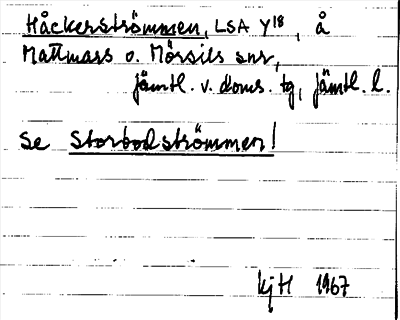 Håckerströmmen, LSA Y18, å
Mattmars o. Mörsils snr,
jämtl. v. doms. tg, jämtl. l.
se Storbodströmmen!
KjH 1967